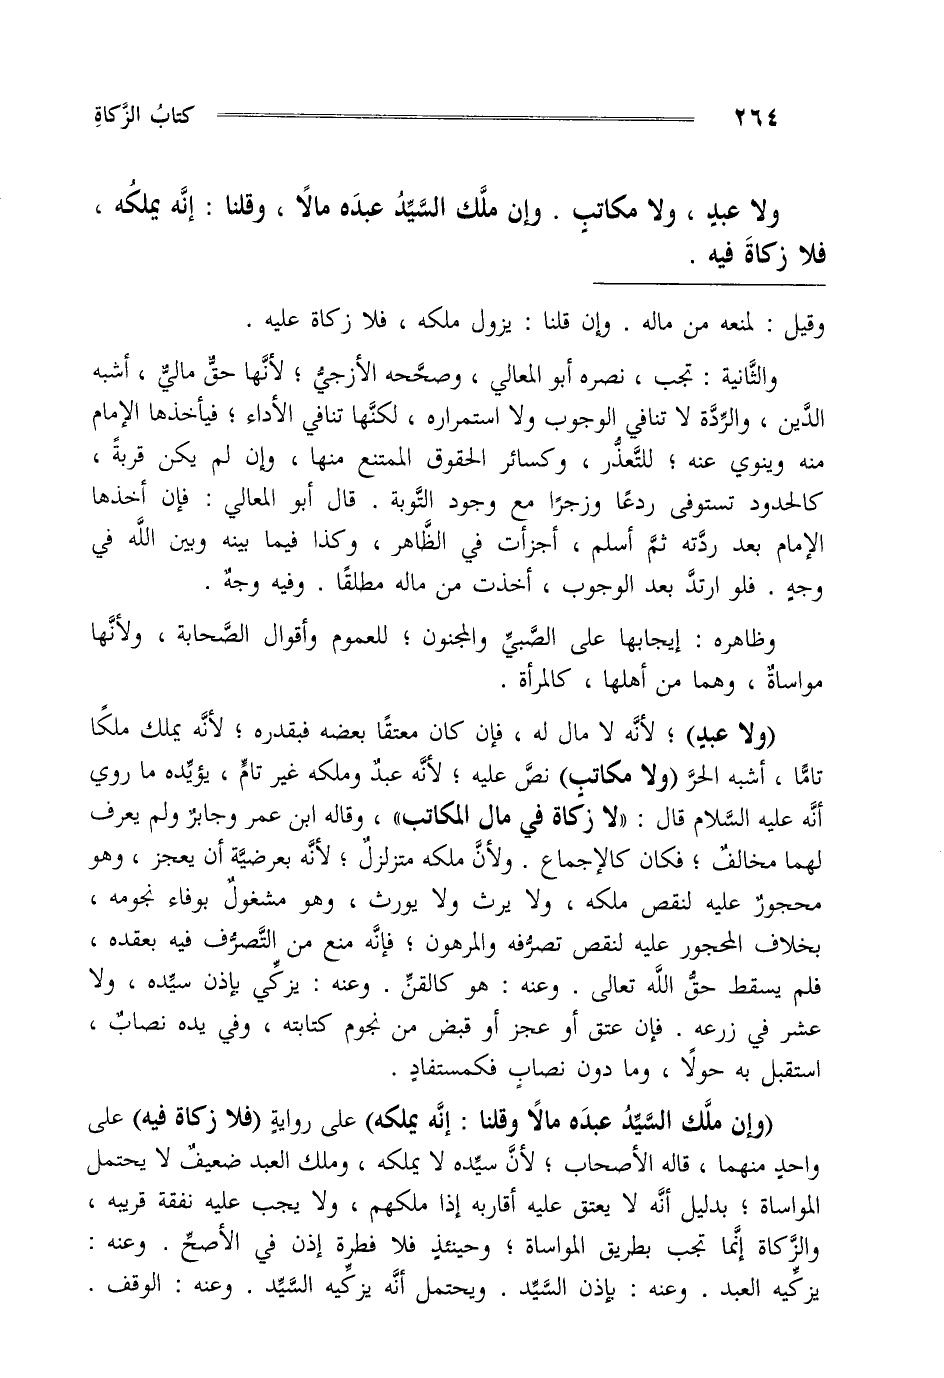 ٢٦٤ كتابُ الزَّكاةِ
ولا عبدٍ ، ولا مكاتبٍ . وإن ملَّك السَّيِّدُ عبدَه مالًا ، وقلنا : إنَّه يملكُه ،
فلا زكاةَ فيه .
وقيل : لمنعه من ماله . وإن قلنا : يزول ملكه ، فلا زكاة عليه .
والثَّانية : تجب ، نصره أبو المعالي ، وصحَّحه الأزجيُّ ؛ لأنَّها حقٌّ ماليٌّ ، أشبه
الدَّين ، والرِّدَّة لا تنافي الوجوب ولا استمراره ، لكنَّها تنافي الأداء ؛ فيأخذها الإمام
منه وينوي عنه ؛ للتَّعذُّر ، وكسائر الحقوق الممتنع منها ، وإن لم يكن قربةً ،
كالحدود تستوفى ردعًا وزجرًا مع وجود التَّوبة . قال أبو المعالي : فإن أخذها
الإمام بعد ردَّته ثمَّ أسلم ، أجزأت في الظَّاهر ، وكذا فيما بينه وبين اللَّه في
وجهٍ . فلو ارتدَّ بعد الوجوب ، أخذت من ماله مطلقًا . وفيه وجهٌ .
وظاهره : إيجابها على الصَّبيِّ والمجنون ؛ للعموم وأقوال الصَّحابة ، ولأنَّها
مواساةٌ ، وهما من أهلها ، كالمرأة .
(ولا عبدٍ) ؛ لأنَّه لا مال له ، فإن كان معتقًا بعضه فبقدره ؛ لأنَّه يملك ملكًا
تامًّا ، أشبه الحرَّ (ولا مكاتبٍ) نصَّ عليه ؛ لأنَّه عبدٌ وملكه غير تامٍّ ، يؤيِّده ما روي
أنَّه عليه السَّلام قال : «لا زكاة في مال المكاتب» ، وقاله ابن عمر وجابرٌ ولم يعرف
لهما مخالفٌ ؛ فكان كالإجماع . ولأنَّ ملكه متزلزلٌ ؛ لأنَّه بعرضيَّة أن يعجز ، وهو
محجورٌ عليه لنقص ملكه ، ولا يرث ولا يورث ، وهو مشغولٌ بوفاء نجومه ،
بخلاف المحجور عليه لنقص تصرُّفه والمرهون ؛ فإنَّه منع من التَّصرُّف فيه بعقده ،
فلم يسقط حقُّ اللَّه تعالى . وعنه : هو كالقنِّ . وعنه : يزكِّي بإذن سيِّده ، ولا
عشر في زرعه . فإن عتق أو عجز أو قبض من نجوم كتابته ، وفي يده نصابٌ ،
استقبل به حولًا ، وما دون نصابٍ فكمستفادٍ .
(وإن ملَّك السَّيِّدُ عبدَه مالًا وقلنا : إنَّه يملكه) على روايةٍ (فلا زكاة فيه) على
واحدٍ منهما ، قاله الأصحاب ؛ لأنَّ سيِّده لا يملكه ، وملك العبد ضعيفٌ لا يحتمل
المواساة ؛ بدليل أنَّه لا يعتق عليه أقاربه إذا ملكهم ، ولا يجب عليه نفقة قريبه ،
والزَّكاة إنَّما تجب بطريق المواساة ؛ وحينئذٍ فلا فطرة إذن في الأصحِّ . وعنه :
يزكِّيه العبد . وعنه : بإذن السَّيِّد . ويحتمل أنَّه يزكِّيه السَّيِّد . وعنه : الوقف .